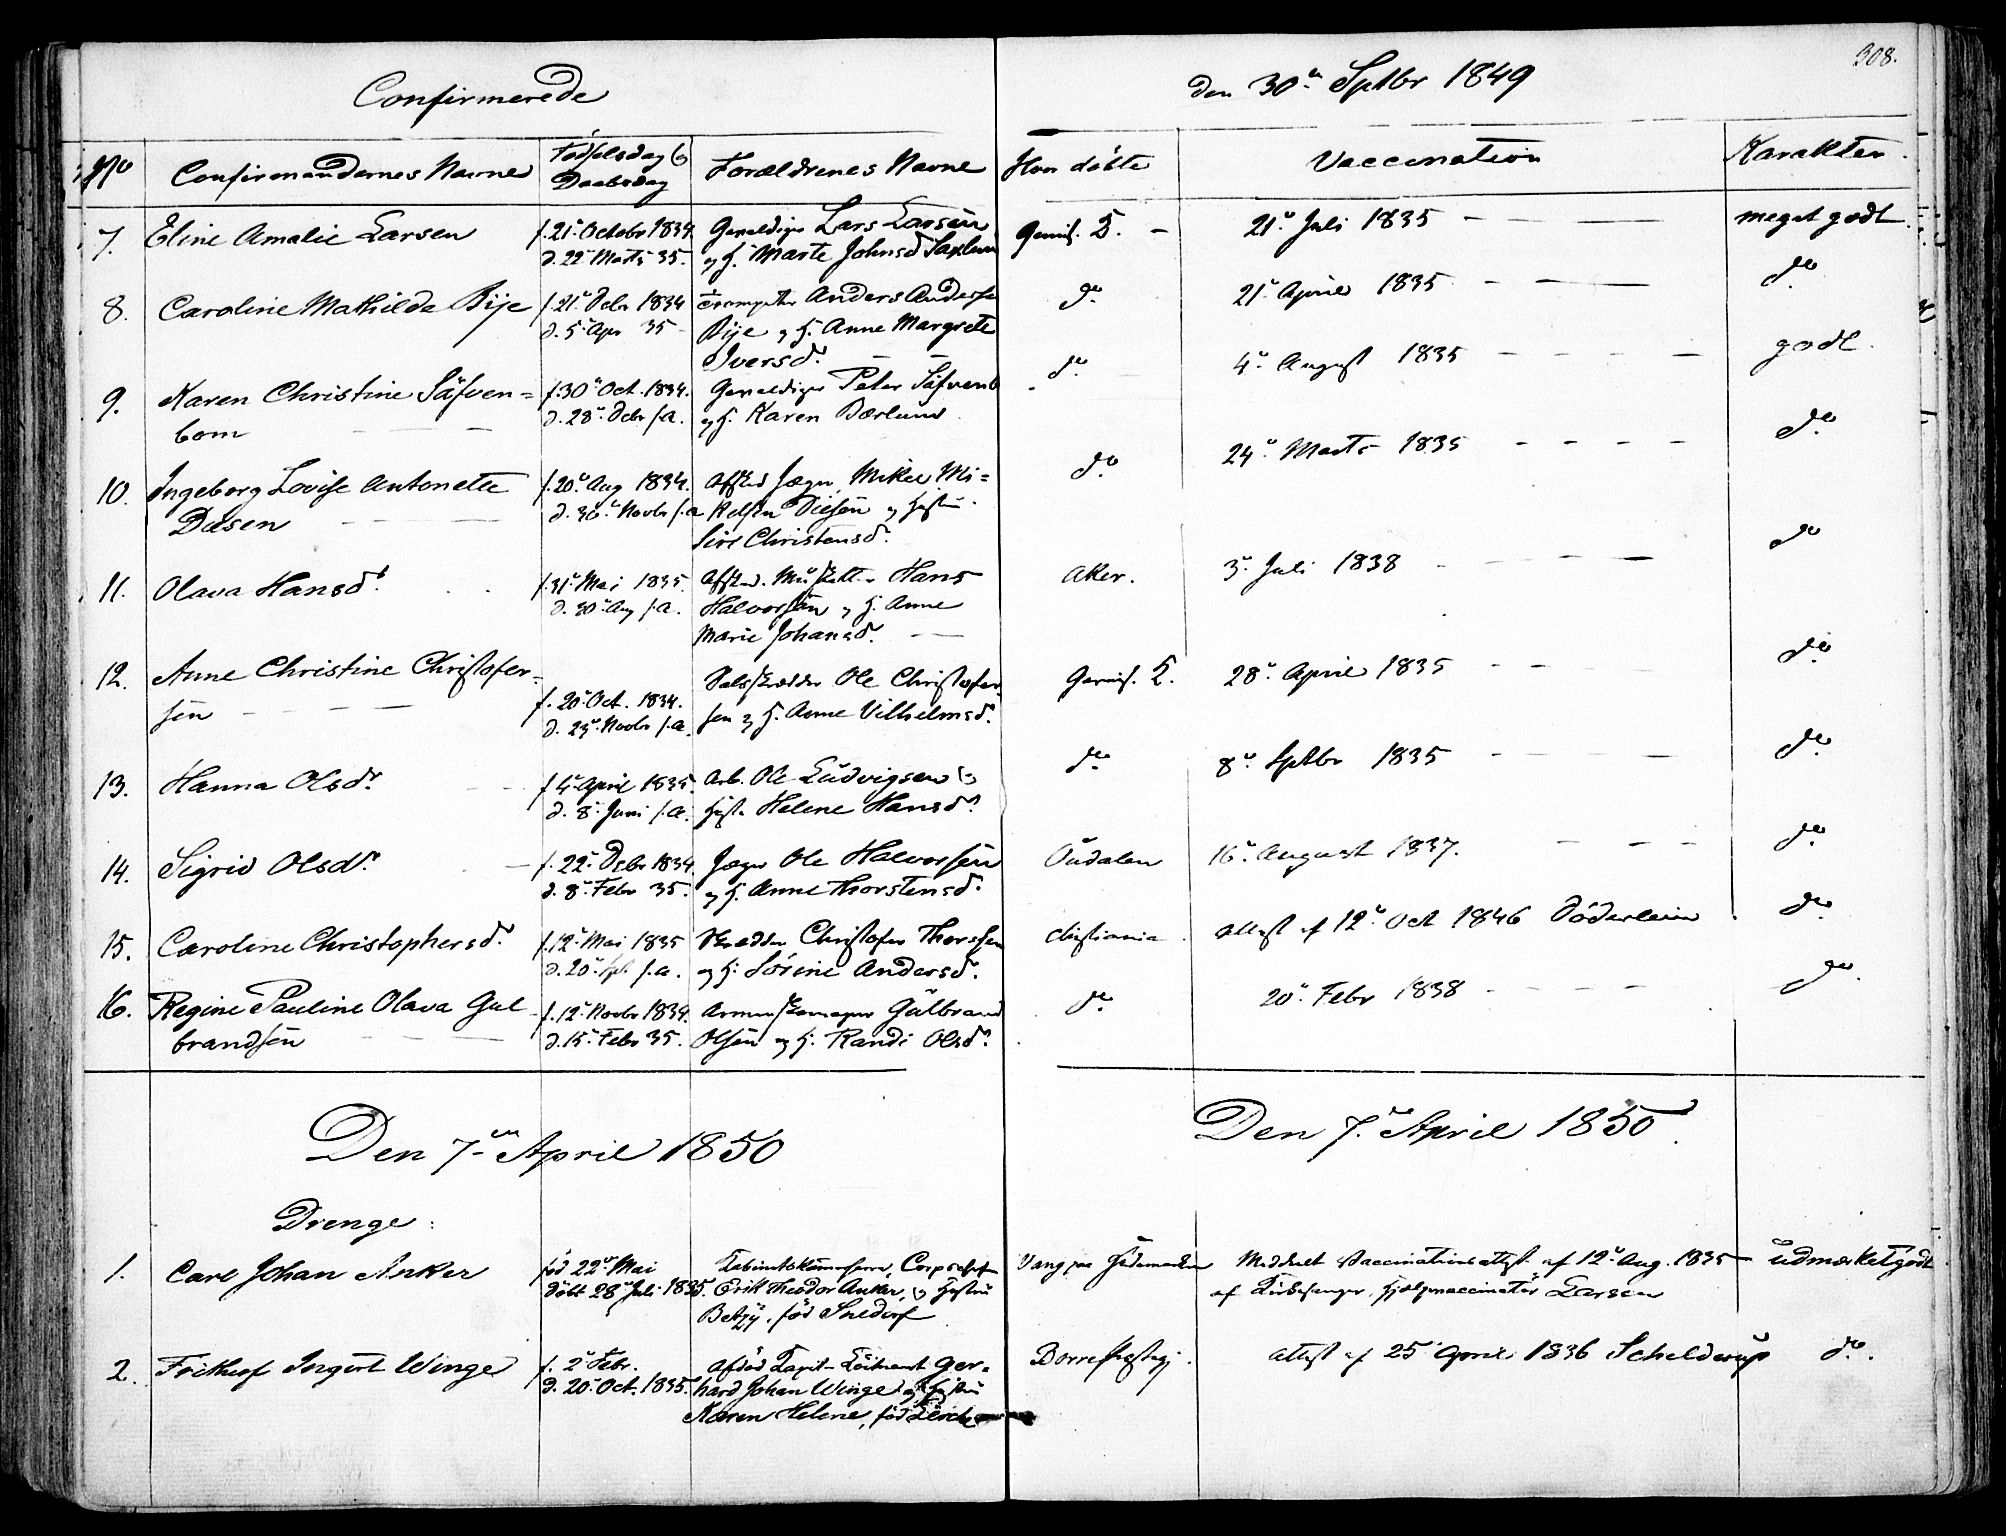 Confirmerede
den 30te Sptbr 1849
308.
No Confirmandernes Navne Fødselsdag & Daabsdag Forældrenes Navne Hvor døbte Vaccination Karakter.
7. Eline Amalie Larsen f. 21 Octobr 1834. Gevaldiger Lars Larsen Garnis. M. – 21 Juli 1835 – – – meget godt
d. 22 Marts 35. og H. Marte Johnsd
8. Caroline Mathilde Bije f. 21 Debr 1834 Trompeter Anders Anders do 21 April 1835 – – – do
d. 5 Apr 35 Bije og H. Anne Margrete
Iversd.
9. Karen Christine Säfven= f. 30 Oct. 1834. Gevaldiger Peter Säfvenb do 4 August 1835 – – – – godt.
bom d. 28 Debr s.a. og H. Karen Bærlund
10. Ingeborg Lovise Antonette f. 20 Aug 1834. Afsked Jæger Mikel Mi= do 24 Marts 1835 – – – – do
Diesen d. 30 Novbr s.a. kelsen Diesen og Hustru
Siri Christensd.
11. Olava Hansd. f. 31 Mai 1835 Afsked. Musket. Hans Aker. 3 Juli 1838 – – – – do
d. 30 Aug s.a. Halvorsen og H. Anne
Marie Johansd.
12. Anne Christine Christofer= Ole Christofer= Garnis. M. 28 April 1835 – – – – do
sen f. 20 Oct. 1834. sen og H. Anne Vilhelmsd.
d. 23 Novbr s.a.
13. Hanna Olsdr f. 4 April 1835. Arb. Ole Ludvigsen & do 8 Sptbr 1835 – – – do
d. 8 Juni s.a. Hust. Helene Hansd.
14. Sigrid Olsdr f. 22 Debr 1834 Jæger Ole Halvorsen Oudalen 16 August 1837. – – – do
d. 8 Febr 35. og H. Anne Thorstensd.
15. Caroline Christophersd. f. 12 Mai 1835 Skrædder Christofer Thorssen Christiania. attest af 12 Oct 1846 Döderlein do
d. 20 Spt. s.a. og H. Sörine Andersd.
16. Regine Pauline Olava Gul f. 12 Novbr 1834. Gulbrand do 20 Febr 1838 – – – – do
brandsen d. 15 Febr 35. Olsen og H. Randi Olsd.
Den 7de April 1850
Den 7de April 1850.
Drenge:
1. Carl Johan Anker fød 22de Mai Kabinetskammerherre, Corpschef Vang paa Hedemarken Meddeelt Vaccinationsattest af 12 Aug. 1835 – udmærketgodt
døbt 28de Juli 1835. Erik Theodor Anker, & Hustru af Kirkesanger, Hjælpevaccinatör Larsen
Betzy, född Sneedorf
2. Frithiof Ingert Winge f. 2 Febr. afdöd Capit. Löitnant Ger= Borre Præstegj. attest af 25 April 1836 Schelderup do.
d. 20 Oct. 1835. hard Johan Winge og Hustru
Karen Helene, född Lerche